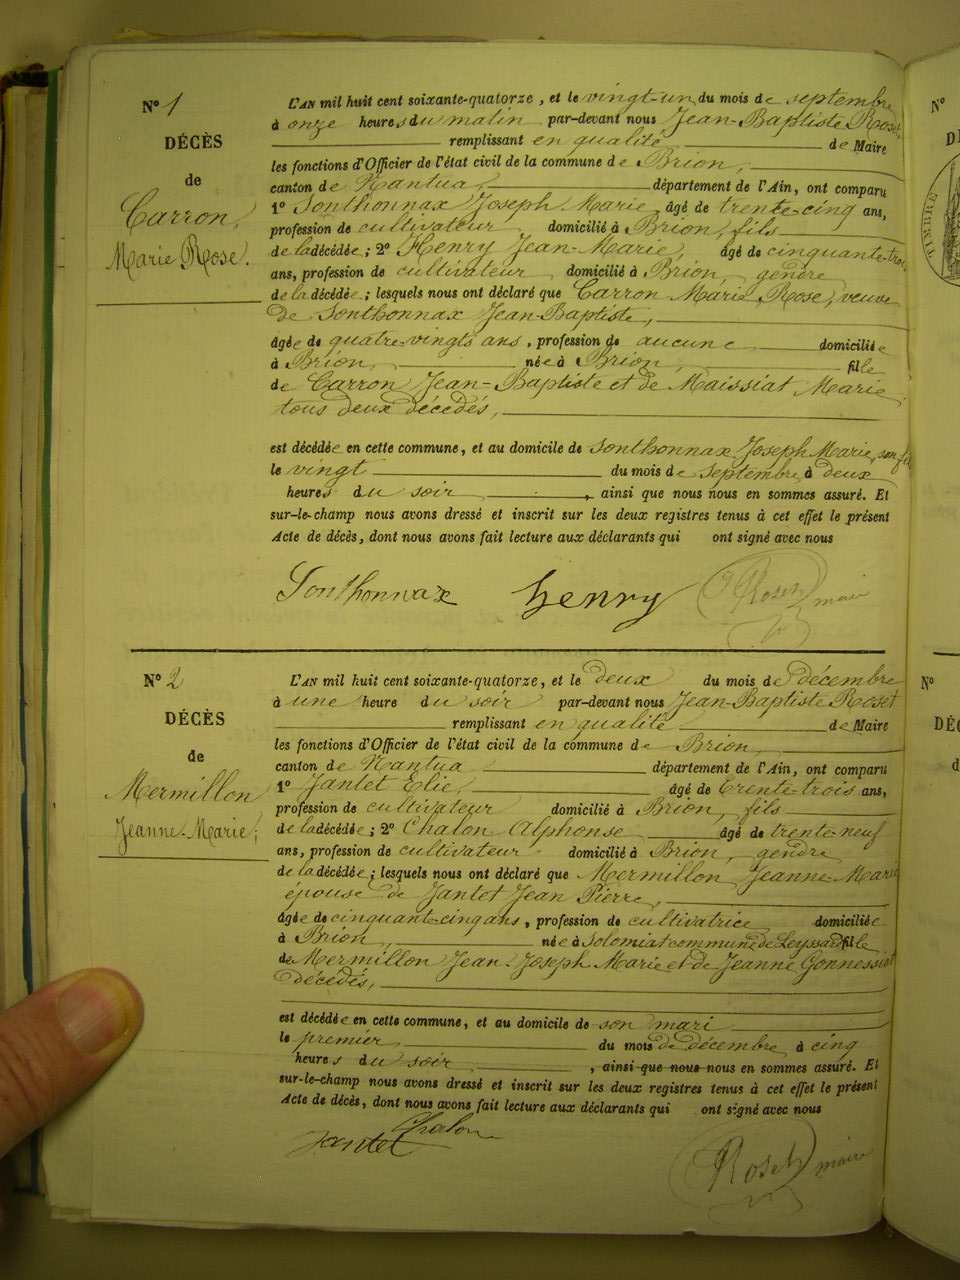 N° 1
DÉCÈS
de
Carron,
Marie Rose.
L'AN mil huit cent soixante-quatorze, et le vingt-un du mois de septembre
à onze heures du matin par-devant nous Jean-Baptiste Roset,
remplissant en qualité de Maire
les fonctions d'Officier de l'état civil de la commune de Brion,
canton de Nantua, département de l'Ain, ont comparu
1° Sonthonnax Joseph Marie, âgé de trente-cinq ans,
profession de cultivateur domicilié à Brion, fils
de la décédée; 2° Henry Jean-Marie, âgé de cinquante-trois
ans, profession de cultivateur domicilié à Brion, gendre
de la décédée; lesquels nous ont déclaré que Carron Marie Rose, veuve
de Sonthonnax Jean-Baptiste,
âgée de quatre-vingts ans, profession de aucune domiciliée
à Brion, née à Brion, fille
de Carron Jean-Baptiste et de Maissiat Marie,
tous deux décédés,
est décédée en cette commune, et au domicile de Sonthonnax Joseph Marie, son fils
le vingt du mois de septembre, à deux
heures du soir, ainsi que nous nous en sommes assuré. Et
sur-le-champ nous avons dressé et inscrit sur les deux registres tenus à cet effet le présent
Acte de décès, dont nous avons fait lecture aux déclarants qui ont signé avec nous
Sonthonnax henry Roset maire
N° 2
DÉCÈS
de
Mermillon
Jeanne-Marie;
L'AN mil huit cent soixante-quatorze, et le deux du mois de décembre
à une heure du soir par-devant nous Jean-Baptiste Roset
remplissant en qualité de Maire
les fonctions d'Officier de l'état civil de la commune de Brion,
canton de Nantua département de l'Ain, ont comparu
1° Jantet Elie, âgé de trente-trois ans,
profession de cultivateur domicilié à Brion, fils
de la décédée; 2° Chalon Alphonse âgé de trente-neuf
ans, profession de cultivateur domicilié à Brion, gendre
de la décédée; lesquels nous ont déclaré que Mermillon Jeanne-Marie
épouse de Jantet Jean Pierre,
âgée de cinquante-cinq ans, profession de cultivatrice domiciliée
à Brion, née à Solomiat commune de Leyssard fille
de Mermillon Jean Joseph Marie et de Jeanne Gonnessiat
décédés,
est décédée en cette commune, et au domicile de son mari
le premier du mois de décembre, à cinq
heures du soir, ainsi que nous nous en sommes assuré. Et
sur-le-champ nous avons dressé et inscrit sur les deux registres tenus à cet effet le présent
Acte de décès, dont nous avons fait lecture aux déclarants qui ont signé avec nous
Jantet Chalon Roset maire
N°
TIMBRE
N°